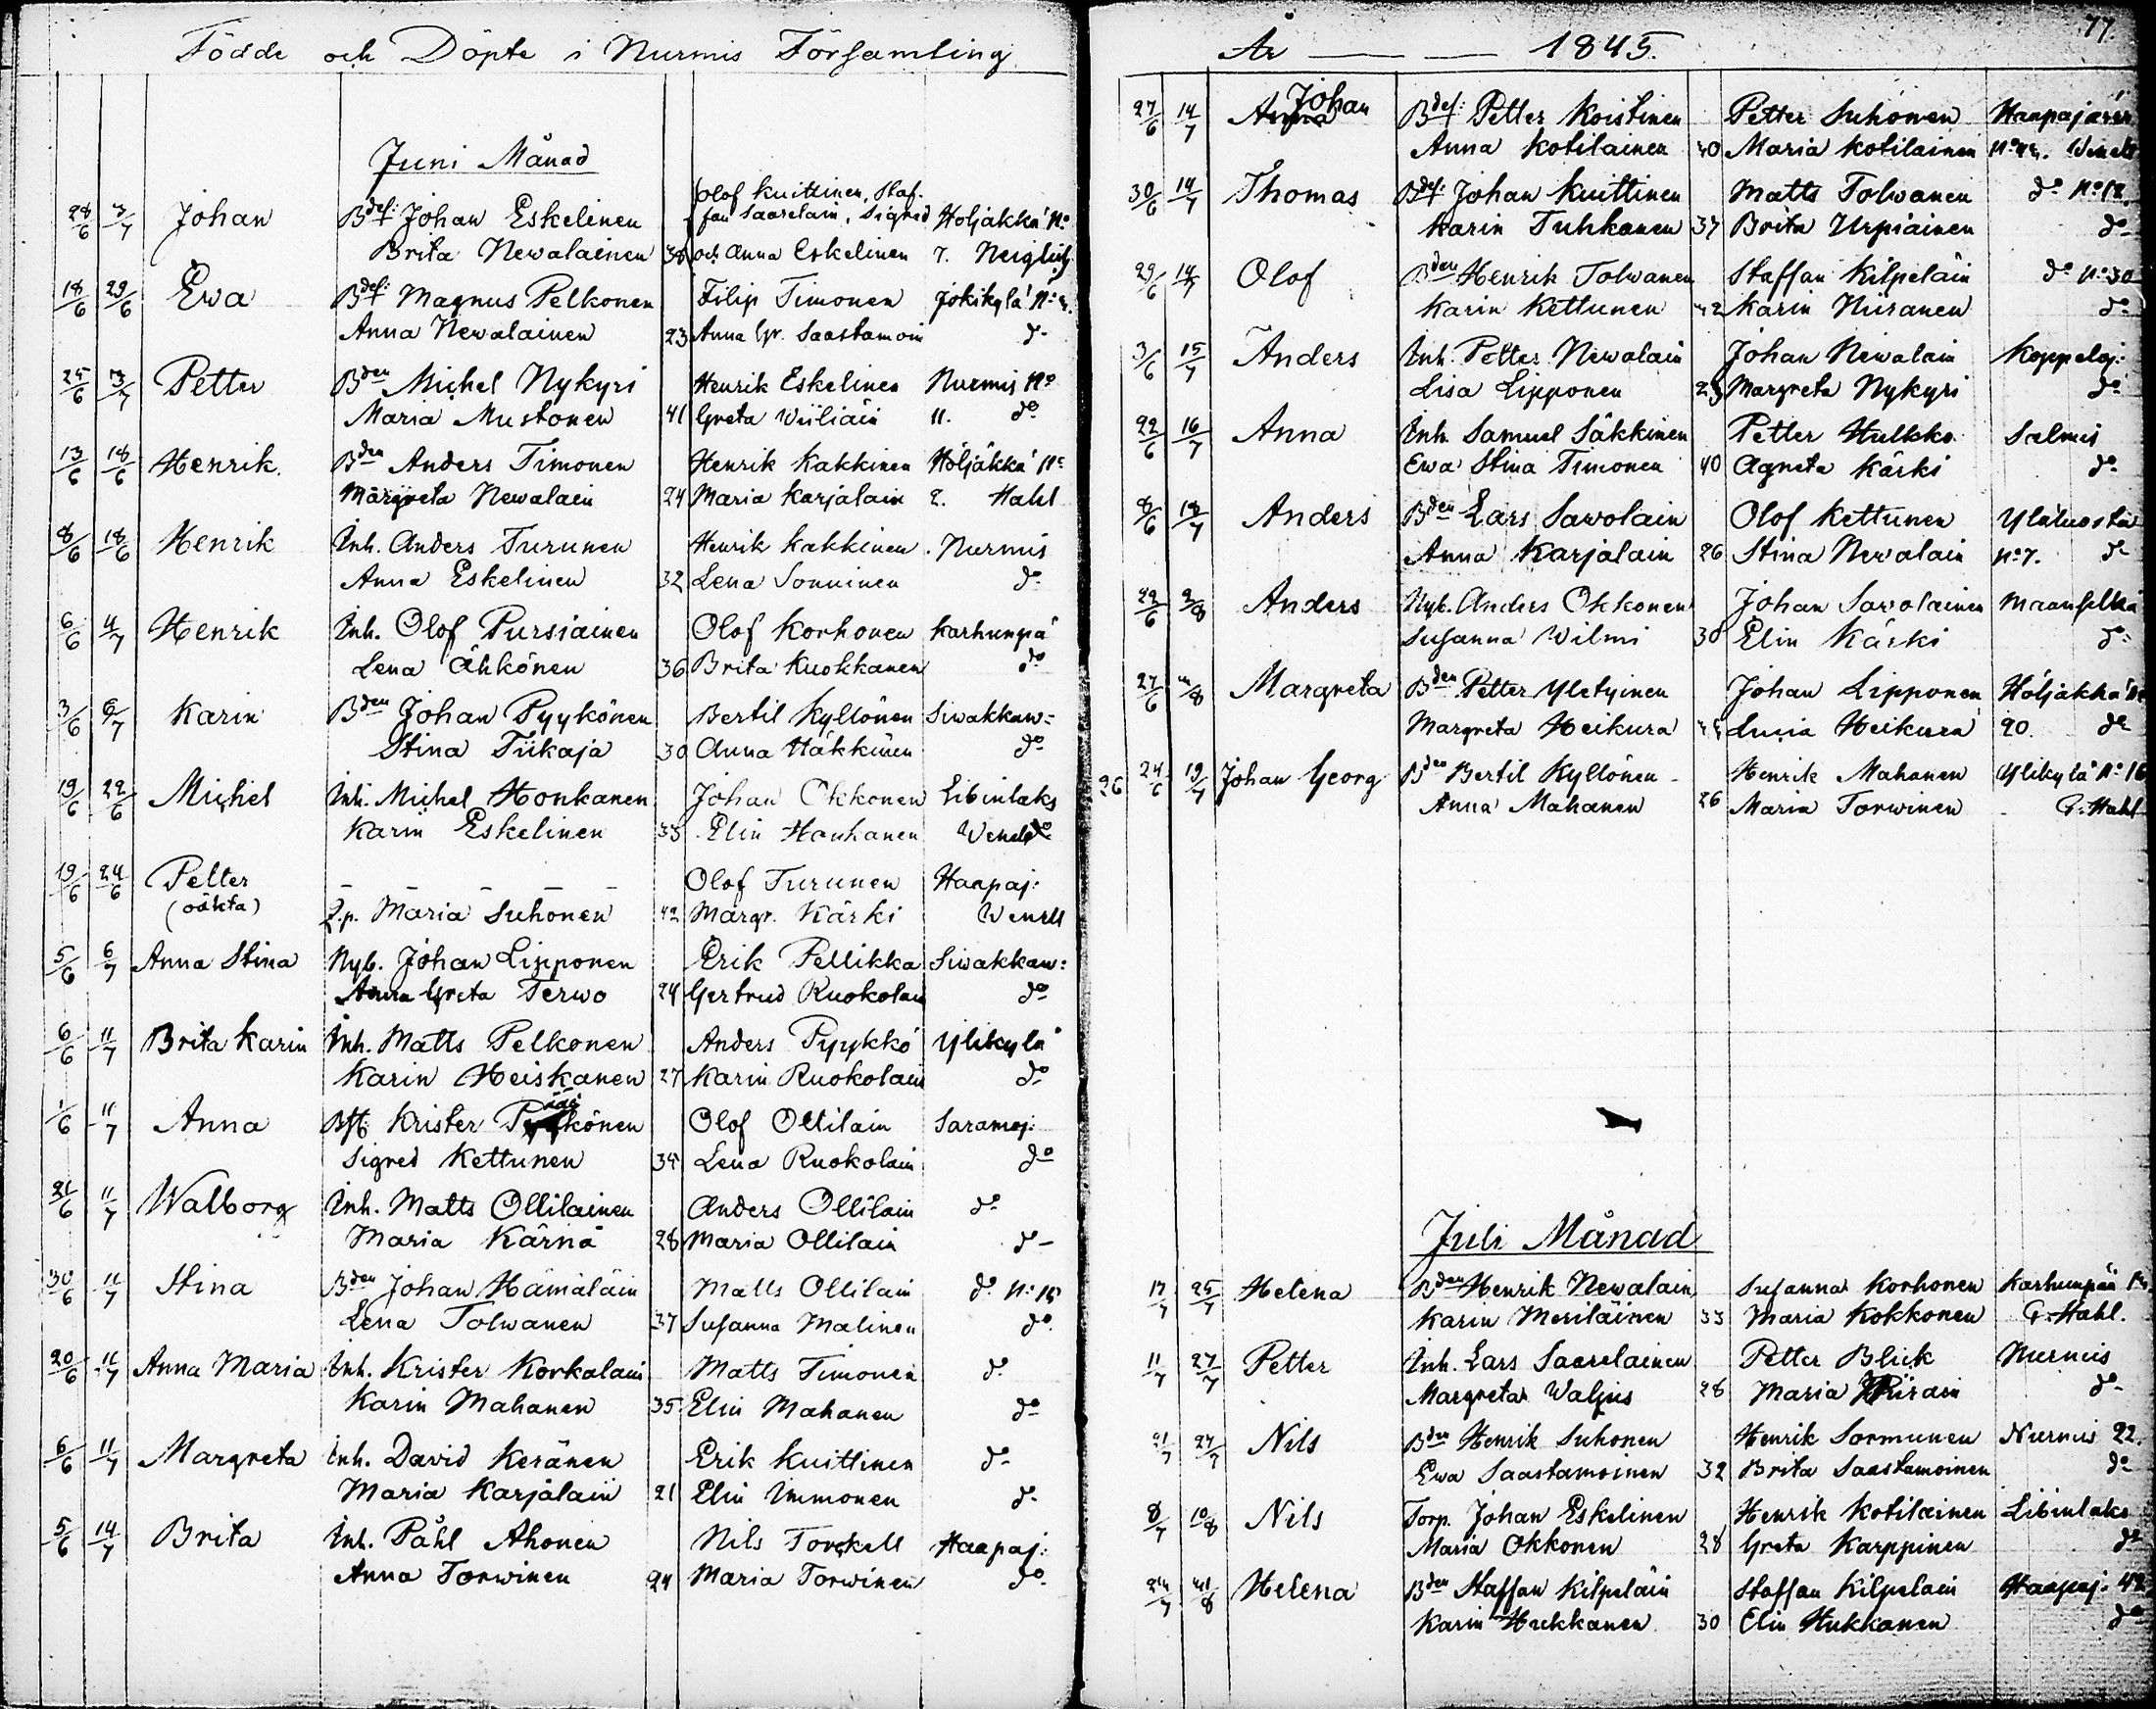 Födde och Döpte i Nurmis Församling
Juni Månad
Olof Kuittinen, Staf-
28/6 3/7 Johan Bdef: Johan Eskelinen fan Saarelain, Sigred Höljäkkä No
Brita Newalainen 38 och Anna Eskelinen 7. Neiglick
18/6 29/6 Ewa Bdef: Magnus Pelkonen Filip Timonen Jokikylä No 4.
Anna Newalainen 23 Anna Gr. Saastamoin do
25/6 13/7 Petter Bden Michel Nykyri Henrik Eskelinen Nurmis No
Maria Mustonen 41 Greta Wiiliäin 11. do
13/6 18/6 Henrik Bden Anders Timonen Henrik Kakkinen Höljäkkä No
Margreta Newalain 24 Maria Karjalain 2. Hahl
8/6 18/6 Henrik Inh. Anders Turunen Henrik Kakkinen Nurmis
Anna Eskelinen 32 Lena Sonninen do
6/6 4/7 Henrik Inh. Olof Pursiainen Olof Korhonen Karhunpä
Lena Ähkönen 36 Brita Kuokkanen do
3/6 6/7 Karin Bden Johan Pyykönen Bertil Kyllönen Siwakkaw:
Stina Tiikaja 30 Anna Häkkinen do
19/6 22/6 Michel Inh. Michel Honkanen Johan Okkonen Libinlaks
Karin Eskelinen 35 Elin Honkanen Wenell
19/6 24/6 Petter - - - - - Olof Turunen Haapaj:
(oäkta) Q.p. Maria Suhonen 42 Margr. Kärki Wenell
5/6 6/7 Anna Stina Nyb. Johan Lipponen Erik Pellikka Siwakkaw:
Anna Greta Terwo 24 Gertrud Ruokolain do
6/6 11/7 Brita Karin Inh. Matts Pelkonen Anders Pyykkö Ylikylä
Karin Heiskanen 27 Karin Ruokolain do
1/6 11/7 Anna Bst. Krister Pääkkönen Olof Ollilain Saramoj:
Sigred Kettunen 34 Lena Ruokolain do
21/6 11/7 Walborg Inh. Matts Ollilainen Anders Ollilain do
Maria Kärnä 28 Maria Ollilain do
30/6 11/7 Stina Bden Johan Hämäläin Matts Ollilain do No 15
Lena Tolwanen 37 Susanna Malinen do
20/6 11/7 Anna Maria Inh. Krister Korkalain Matts Timonen do
Karin Mahanen 35 Elin Mahanen do
6/6 11/7 Margreta Inh. David Keränen Erik Kuittinen do
Maria Karjalain 21 Elin Immonen do
5/6 14/7 Brita Inh. Påhl Ahonen Nils Torckell Haapaj:
Anna Torwinen 24 Maria Torwinen do
År 1845. 77.
27/6 14/7 Johan Bdef: Petter Koistinen Petter Suhonen Haapajärvi
Anna Kotilainen 40 Maria Kotilainen Wenell
30/6 14/7 Thomas Bdef: Johan Kuittinen Matts Tolwanen do No 12.
Karin Tuhkanen 37 Brita Urpiainen do
29/6 14/7 Olof Bden Henrik Tolwanen Staffan Kilpeläin do No 30
Karin Kettunen 42 Karin Niiranen do
3/6 15/7 Anders Inh. Petter Newalain Johan Newalain Koppeloj:
Lisa Lipponen 25 Margreta Nykyri do
22/6 16/7 Anna Inh. Samuel Säkkinen Petter Hulkko Salmis
Ewa Stina Timonen 40 Agneta Kärki do
8/6 18/7 Anders Bden Lars Sawolain Olof Kettunen Ylåluosta
Anna Karjalain 26 Stina Newalain No 7. do
22/6 2/8 Anders Nyb. Anders Okkonen Johan Savolainen Maanselkä
Susanna Wilmi 30 Elin Kärki do
27/6 /8 Margreta Bden Petter Yletyinen Johan Lipponen Höljäkkä No
Margreta Heikura Lucia Heikura 20. do
26 24/6 19/7 Johan Georg Bden Bertil Kyllönen Henrik Mahanen Ylikylä No 16
Anna Mahanen 26 Maria Torwinen G. Hahl
Juli Månad
17/7 25/7 Helena Bden Henrik Newalain Susanna Korhonen Karhunpää
Karin Meriläinen 33 Maria Kokkonen G. Hahl.
11/7 27/7 Petter Inh. Lars Saarelainen Petter Blick Nurmis
Margreta Waljus 28 Maria do
21/7 27/7 Nils Bden Henrik Suhonen Henrik Sormunen Nurmis 22.
Ewa Saastamoinen 32 Brita Saastamoinen do
8/7 10/8 Nils Torp. Johan Eskelinen Henrik Kotilainen Libinlaks
Maria Okkonen 28 Greta Karppinen do
24/7 /8 Helena Bden Staffan Kilpeläin Staffan Kilpelain Haapaj. 42
Karin Hukkanen 30 Elin Hukkanen do